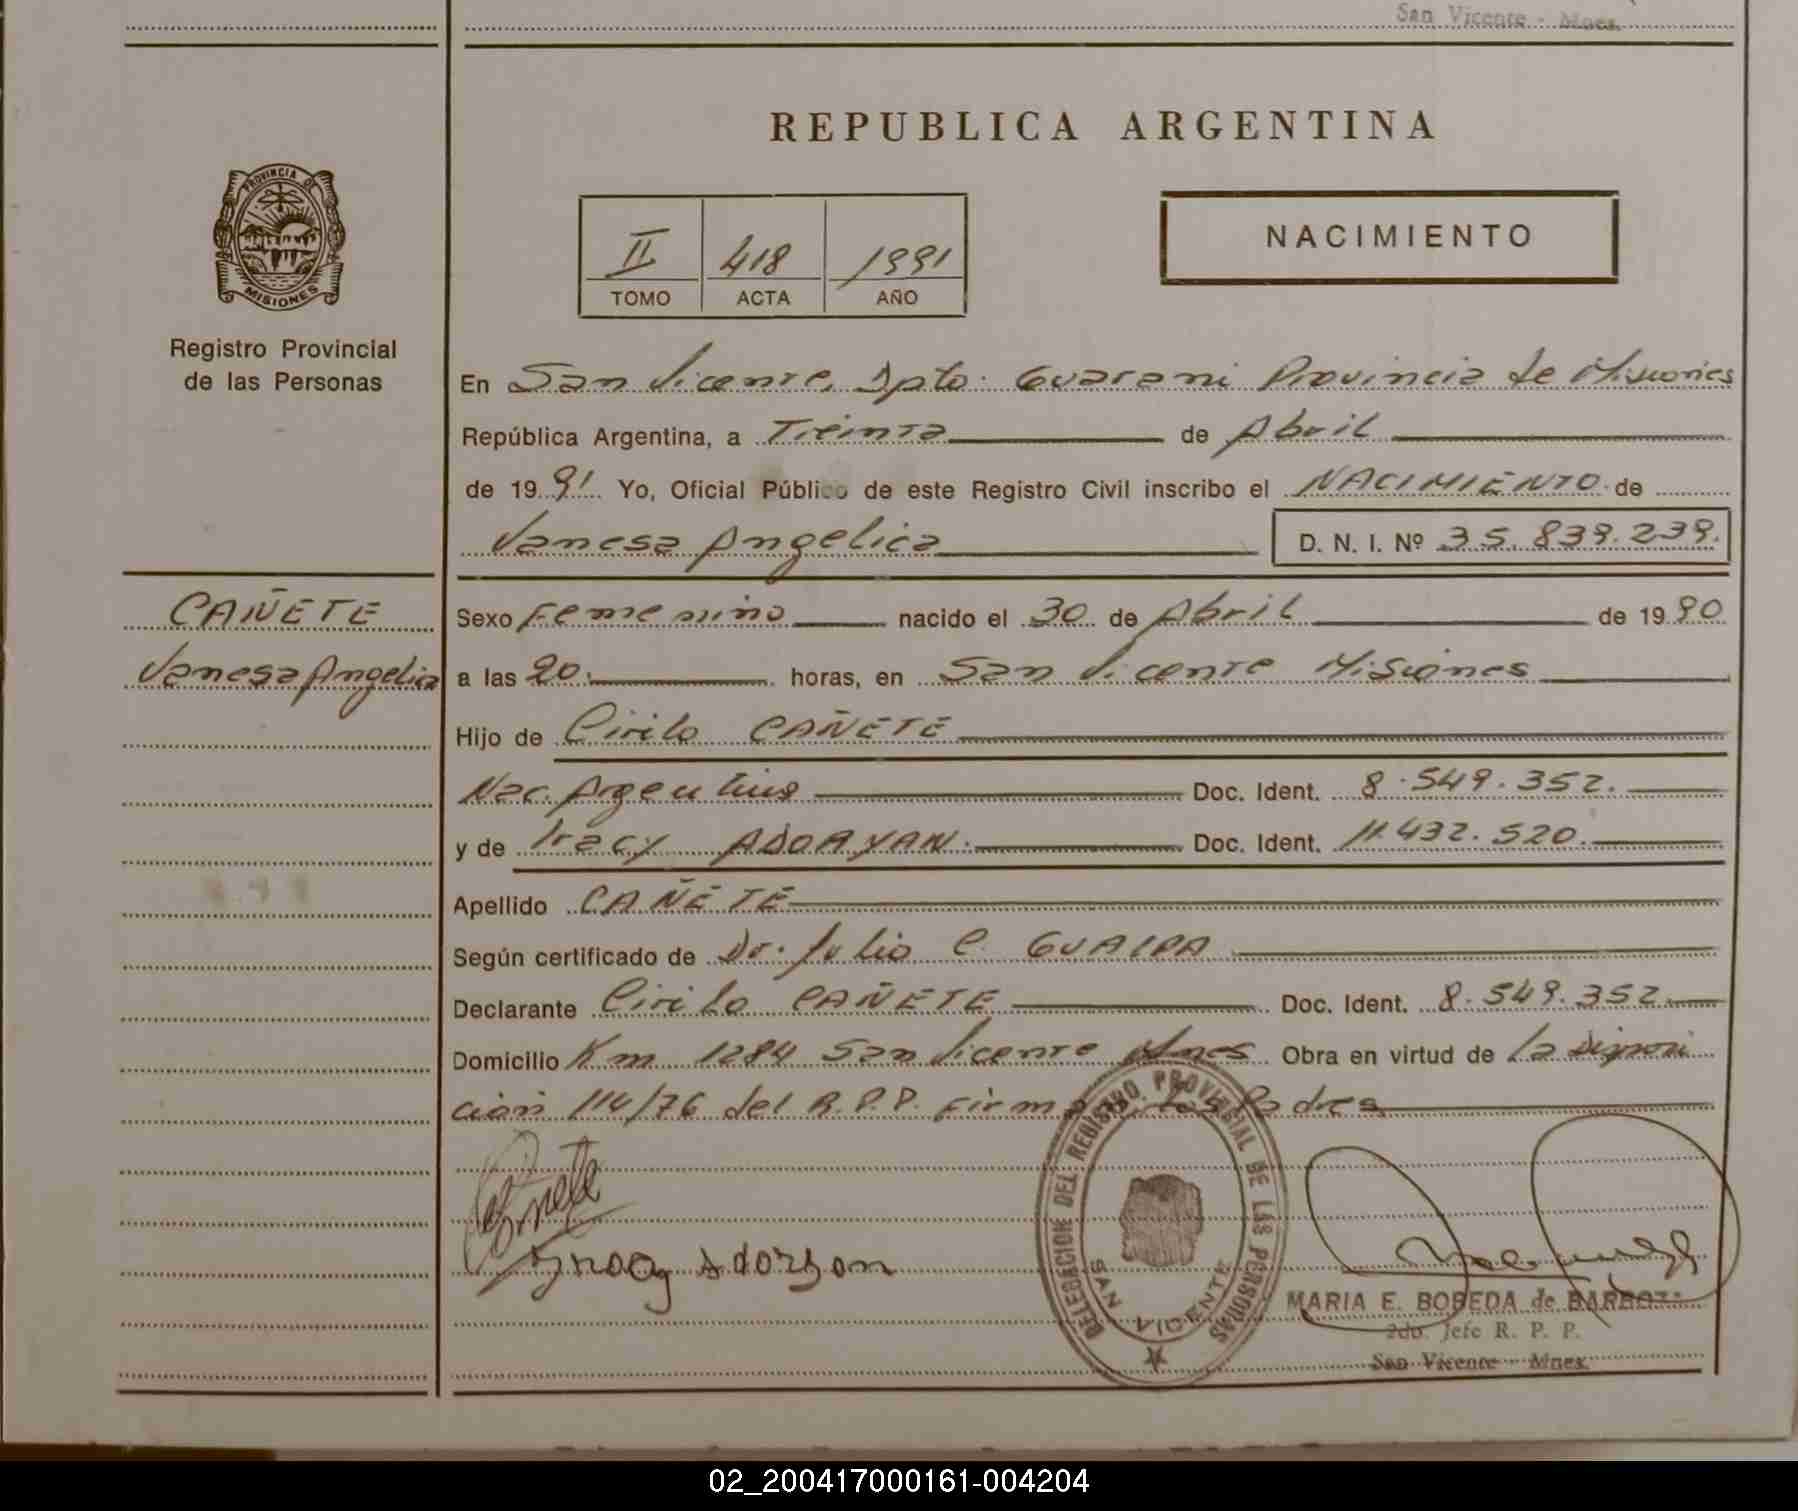 San Vicente - Mnes.
REPUBLICA ARGENTINA
PROVINCIA DE
MISIONES
Registro Provincial
de las Personas
II 418 1991
TOMO ACTA AÑO
NACIMIENTO
En San Vicente, Dpto. Guarani Provincia de Misiones
República Argentina, a Treinta de Abril
de 1991 Yo, Oficial Público de este Registro Civil inscribo el NACIMIENTO de
Vanesa Angelica D. N. I. Nº 35.839.239.
CAÑETE
Vanesa Angelica
Sexo Femenino nacido el 30 de Abril de 1990
a las 20 horas, en San Vicente Misiones
Hijo de Cirilo CAÑETE
Nac. Argentina Doc. Ident. 8.549.352.
y de Iracy ADORYAN. Doc. Ident. 11.432.520.
Apellido CAÑETE
Según certificado de Dr. Julio C. GUALPA
Declarante Cirilo CAÑETE Doc. Ident. 8.549.352
Domicilio Km 1284 San Vicente Mnes Obra en virtud de la disposi
ción 114/76 del R.P.P. Firman los Padres
Cañete
DELEGACION DEL REGISTRO PROVINCIAL DE LAS PERSONAS
SAN VICENTE
MARIA E. BOBEDA de BARBOZA
2do. Jefe R. P. P.
San Vicente - Mnes.
02_200417000161-004204